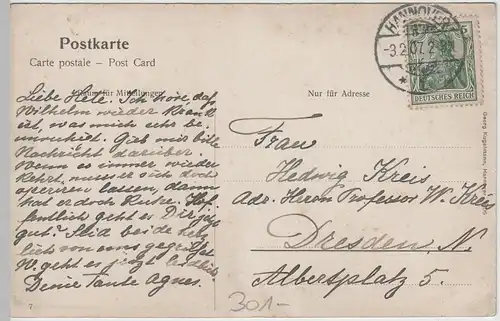 Postkarte
Carte postale – Post Card
Raum für Mitteilungen
Nur für Adresse
HANNOVER
3.2.07.
DEUTSCHES REICH
5
Liebe Hete. Ich höre, daß
Wilhelm wieder krank
ist, was mich sehr be-
unruhigt. Gieb mir bitte
Nachricht darüber.
Wenn es immer wieder
kehrt, muß er sich doch
operieren lassen, dann
hat er doch Ruhe. Hof-
fentlich geht es Dir jetzt
gut? Seid beide herz-
lich von uns gegrüßt.
W. geht es jetzt
Deine Tante Agnes.
Frau
Hedwig Kreis
Adr. Herrn Professor W. Kreis
Dresden, N.
Albertsplatz 5.
Georg Kugelmann, Hannover
7
301-